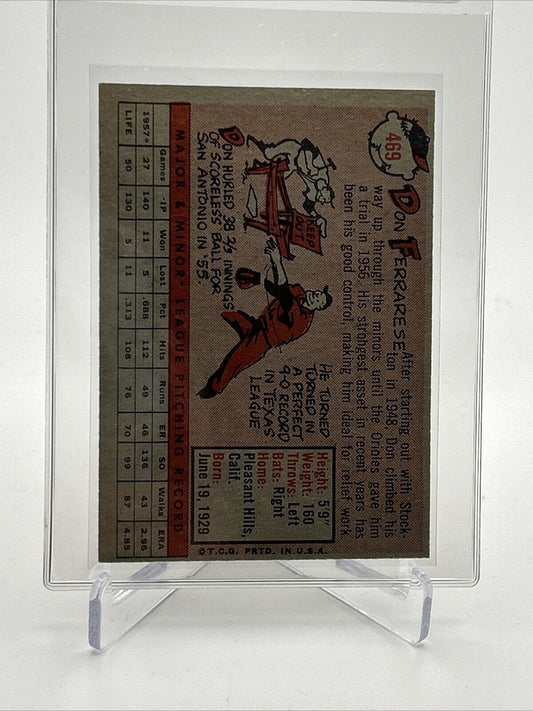 469
DON FERRARESE
After starting out with Stock-
ton in 1948, Don climbed his
way up through the minors until the Orioles gave him
a trial in 1956. His strongest asset in recent years has
been his good control, making him ideal for relief work
KEEP OUT
DON HURLED 38 2/3 INNINGS
OF SCORELESS BALL FOR
SAN ANTONIO IN '55.
HE TURNED
TURNED IN
A PERFECT
9-0 RECORD
IN TEXAS
LEAGUE
Height: 5'9"
Weight: 160
Throws: Left
Bats: Right
Home:
Pleasant Hills,
Calif.
Born:
June 19, 1929
MAJOR & MINOR LEAGUE PITCHING RECORD
Games IP Won Lost Pct Hits Runs ER SO Walks ERA
1957* 27 140 11 5 .688 112 49 46 136 43 2.96
LIFE 50 130 5 11 .313 108 76 70 99 87 4.85
©T.C.G. PRTD. IN U.S.A.